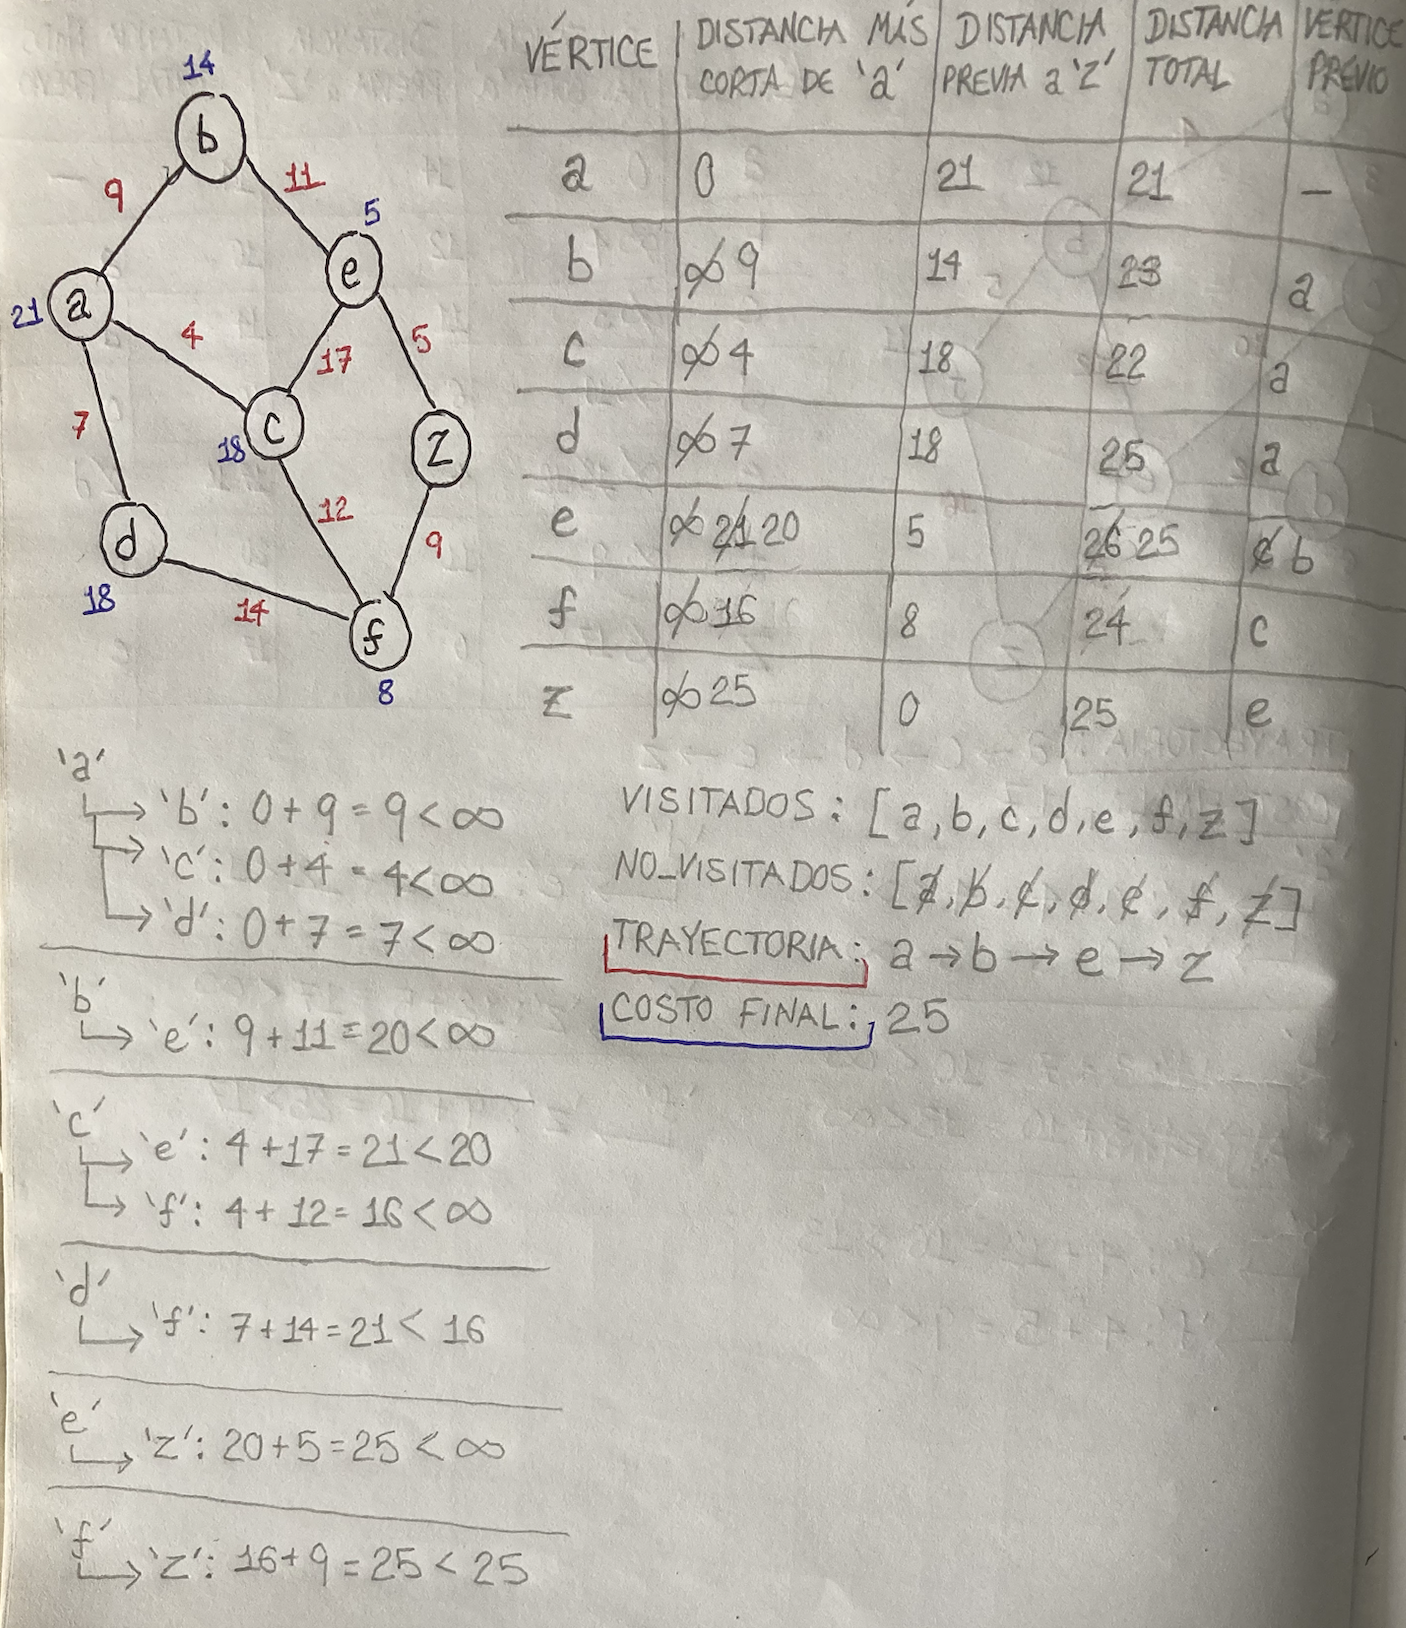 14
b
9
11
5
e
21 a
4
17
5
7
c
18
z
12
d
9
18
14
f
8
VÉRTICE | DISTANCIA MÁS CORTA DE 'a' | DISTANCIA PREVIA a 'Z' | DISTANCIA TOTAL | VÉRTICE PREVIO
a | 0 | 21 | 21 | –
b | ∞ 9 | 14 | 23 | a
c | ∞ 4 | 18 | 22 | a
d | ∞ 7 | 18 | 25 | a
e | ∞ 21 20 | 5 | 26 25 | c b
f | ∞ 16 | 8 | 24 | c
z | ∞ 25 | 0 | 25 | e
'a'
→ 'b': 0+9=9<∞
→ 'c': 0+4=4<∞
→ 'd': 0+7=7<∞
'b'
→ 'e': 9+11=20<∞
'c'
→ 'e': 4+17=21<20
→ 'f': 4+12=16<∞
'd'
→ 'f': 7+14=21<16
'e'
→ 'z': 20+5=25<∞
'f'
→ 'z': 16+9=25<25
VISITADOS: [a,b,c,d,e,f,z]
NO_VISITADOS: [a,b,c,d,e,f,z]
TRAYECTORIA: a→b→e→z
COSTO FINAL: 25